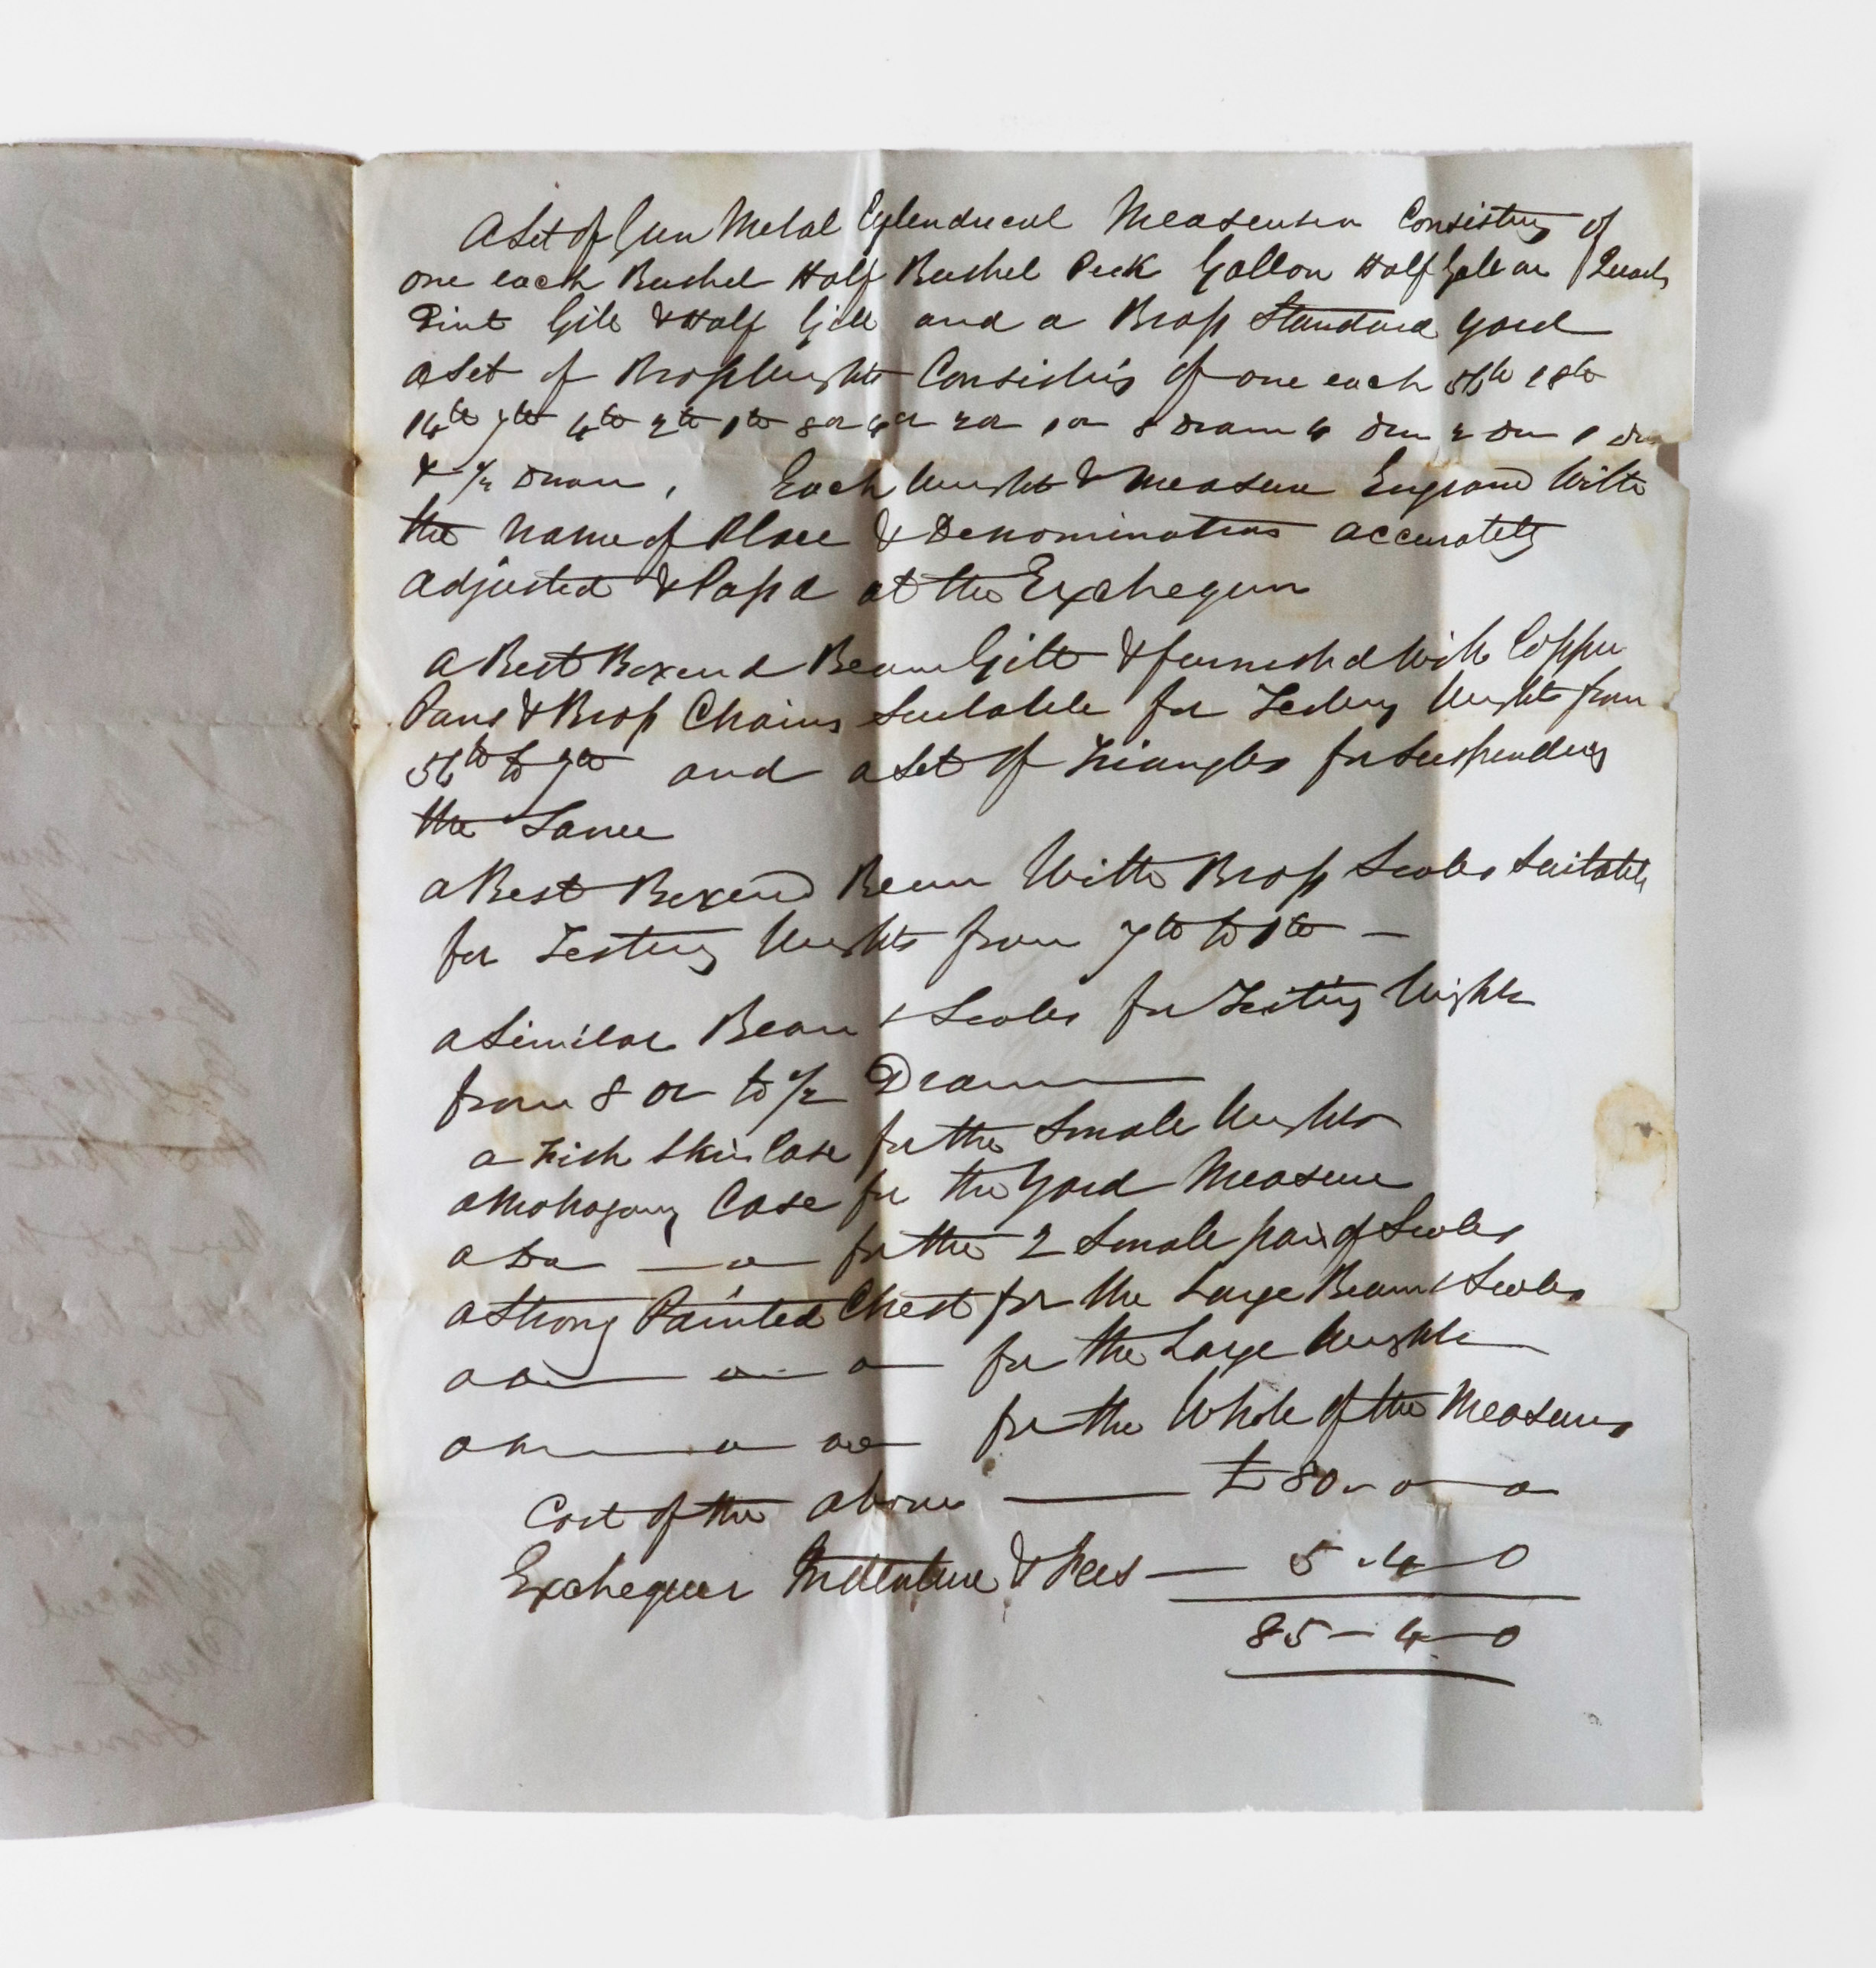 A Set of Gun Metal Cylendrical Measures Consisting of
one each Bushel Half Bushel Peck Gallon Half Gallon Quart
Pint Gill & Half Gill and a Brass Standard Yard
a Set of Brass Weights Consisting of one each 56lb 28lb
14lb 7lb 4lb 2lb 1lb 8oz 4oz 2oz 1oz 8 Dram 4 Drm 2 Dm 1 Dm
& 1/2 Dram, Each Weight & Measure Engravd With
the Name of Place & Denomination accurately
adjusted & Passd at the Exchequer
a Best Boxend Beam Gilt & furnished With Copper
Pans & Brass Chains Suitable for Testing Weights from
56lb to 7lb and a Set of Triangles for Suspending
the Same
a Best Boxend Beam With Brass Scales Suitable
for Testing Weights from 7lb to 1lb —
a Similar Beam & Scales for Testing Weights
from 8 oz to 1/2 Dram
a Fish Skin Case for the Small Weights
a Mohogany Case for the Yard Measure
a Do — o — for the 2 Small pair of Scales
a Strong Painted Chest for the Large Beam & Scales
a do — do — o — for the Large Weights
a — o — for the Whole of the Measures
Cost of the above — £80 - 0 - 0
Exchequer Indenture & Fees — 5 - 4 - 0
85 - 4 - 0